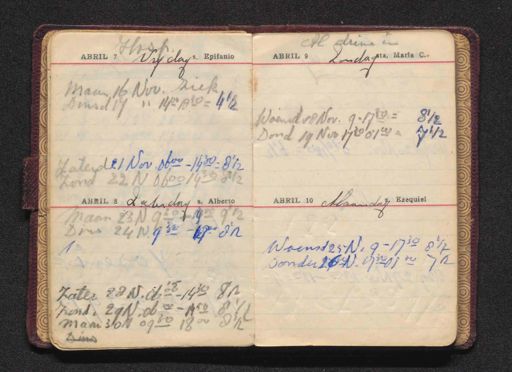 Hosp.
ABRIL 7 Vrydag s. Epifanio
Maan 16 Nov. Sick
Dinsd 17 " 14⁰⁰ 18³⁰ = 4½
Zaterd 21 Nov 06⁰⁰ - 14³⁰ = 8½
Zond 22 N 06⁰⁰ 14³⁰ 8½
ABRIL 8 Zaterdag s. Alberto
Maan 23 N 9⁰⁰ 9½
Dins 24 N 9³⁰ 8½
Zater 28 N. 06⁰⁰ - 14³⁰ 8½
Zond. 29 N. 06⁰⁰ - 14³⁰ 8½
Maan 30 N 09³⁰ 18⁰⁰ 8½
Dins
ABRIL 9 Zondag sta. Maria C.
Woensd 18 Nov. 9 - 17³⁰ = 8½
Dond 19 Nov 17³⁰ 01⁰⁰ = 7½
ABRIL 10 Maandag Ezequiel
Woensd 25 N. 9 - 17³⁰ 8½
Donder 26 N. 17³⁰ 01⁰⁰ 7½